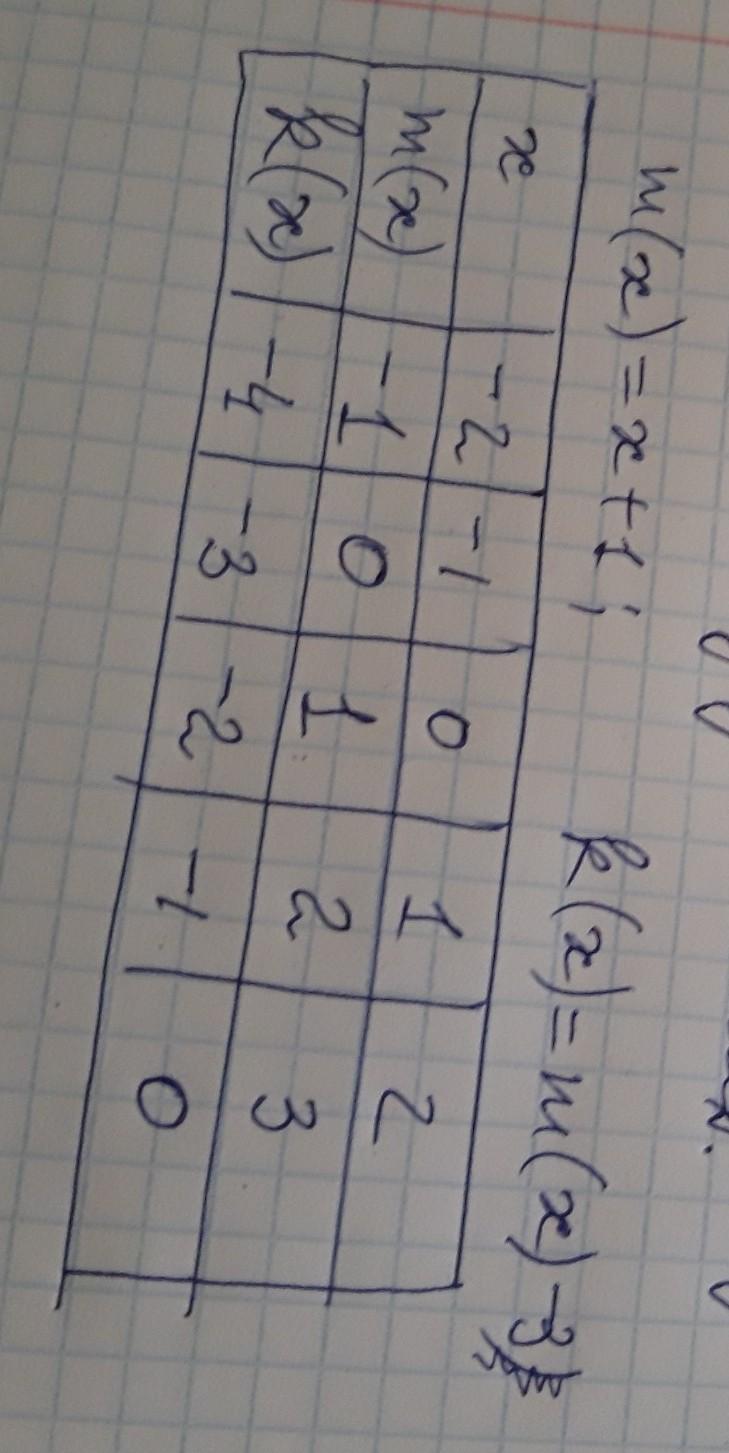 m(x) = x + 1 ; k(x) = m(x) - 3
x -2 -1 0 1 2
m(x) -1 0 1 2 3
k(x) -4 -3 -2 -1 0